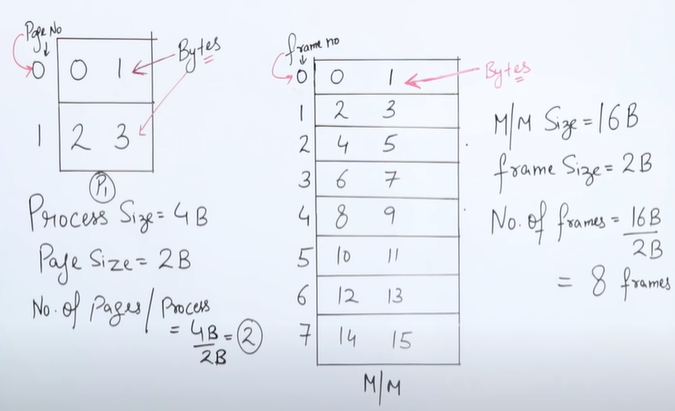 Page No
0 0 1 Bytes
1 2 3
P1
Process Size = 4B
Page Size = 2B
No. of Pages / Process
= 4B = 2
2B
frame no
0 0 1 Bytes
1 2 3
2 4 5
3 6 7
4 8 9
5 10 11
6 12 13
7 14 15
M/M
M/M Size = 16B
frame Size = 2B
No. of frames = 16B
2B
= 8 frames